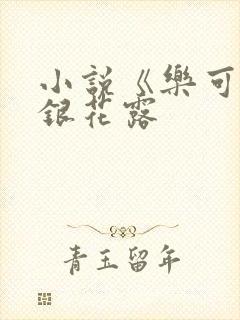 小説《樂可
銀花露
青玉留年